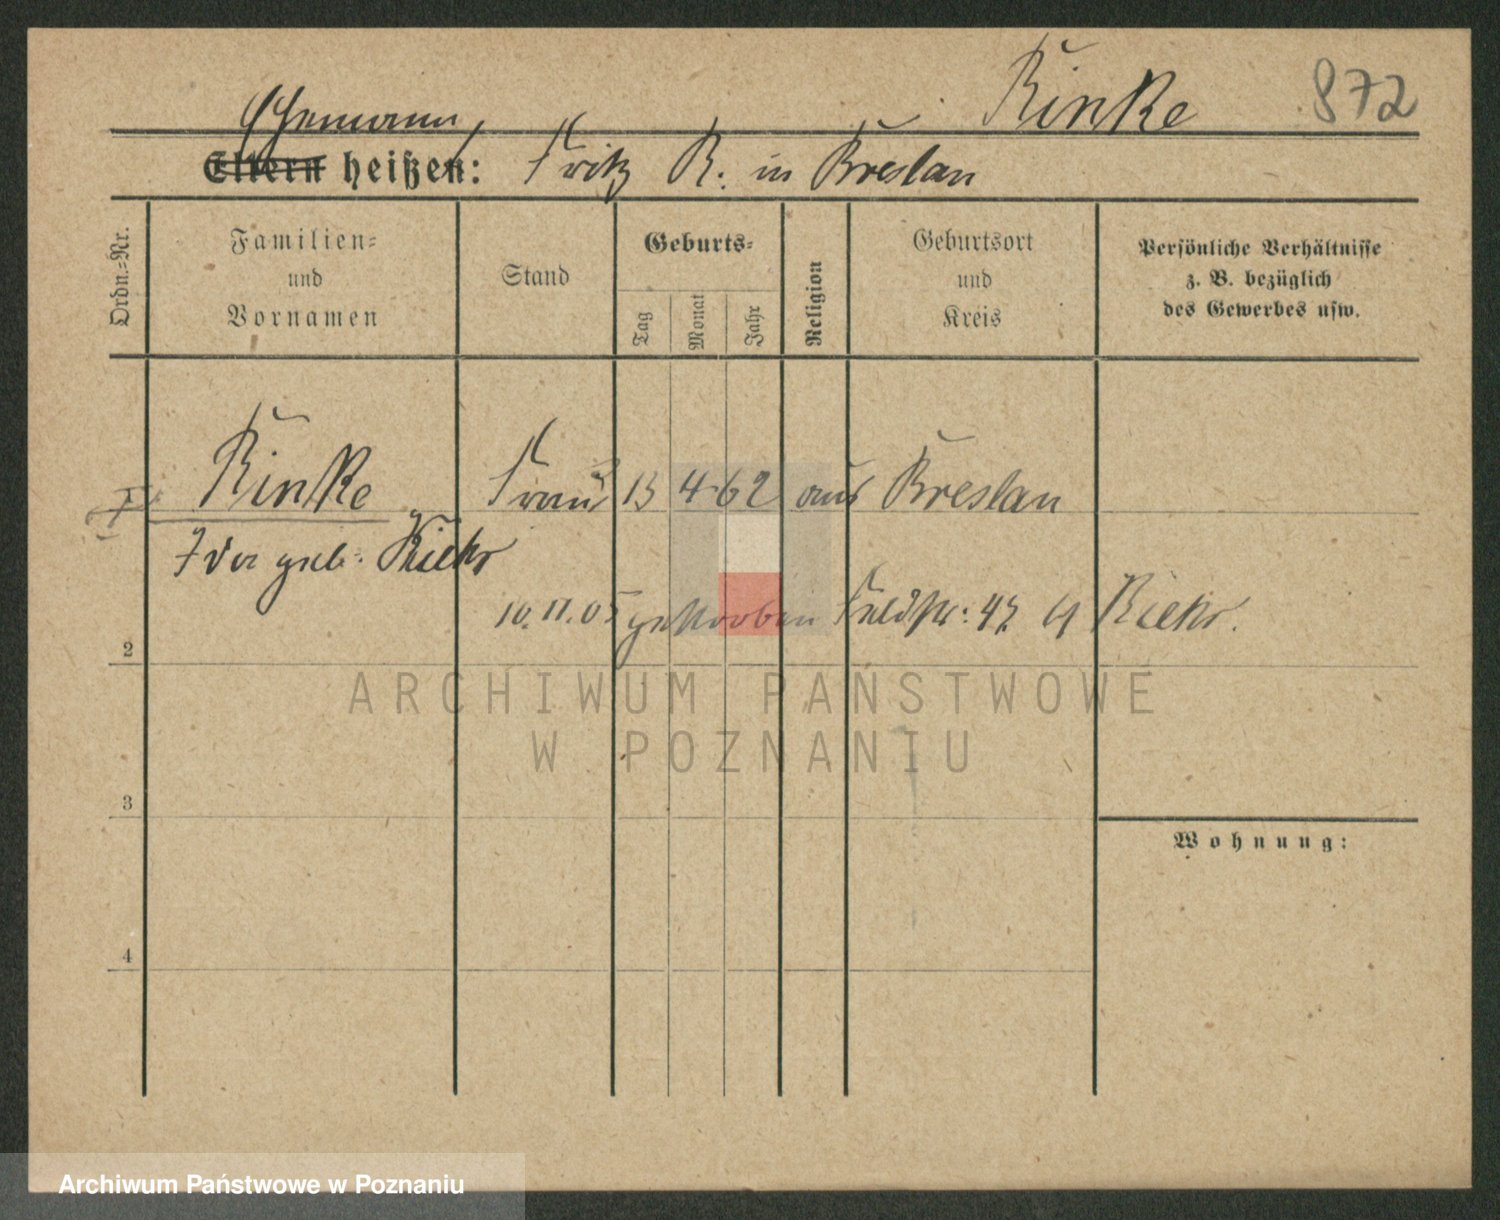 Rinke 872
Ehemann
Eltern heißen: Fritz R. in Breslau
Ordn.=Nr.
Familien=
und
Vornamen
Stand
Geburts=
Tag
Monat
Jahr
Religion
Geburtsort
und
Kreis
Persönliche Verhältnisse
z. B. bezüglich
des Gewerbes usw.
Rinke Frau 13 4 62 aus Breslau
Ida geb.
10. 11. 05 gestorben Feldstr: 47
2
3
4
Wohnung:
ARCHIWUM PAŃSTWOWE
W POZNANIU
Archiwum Państwowe w Poznaniu